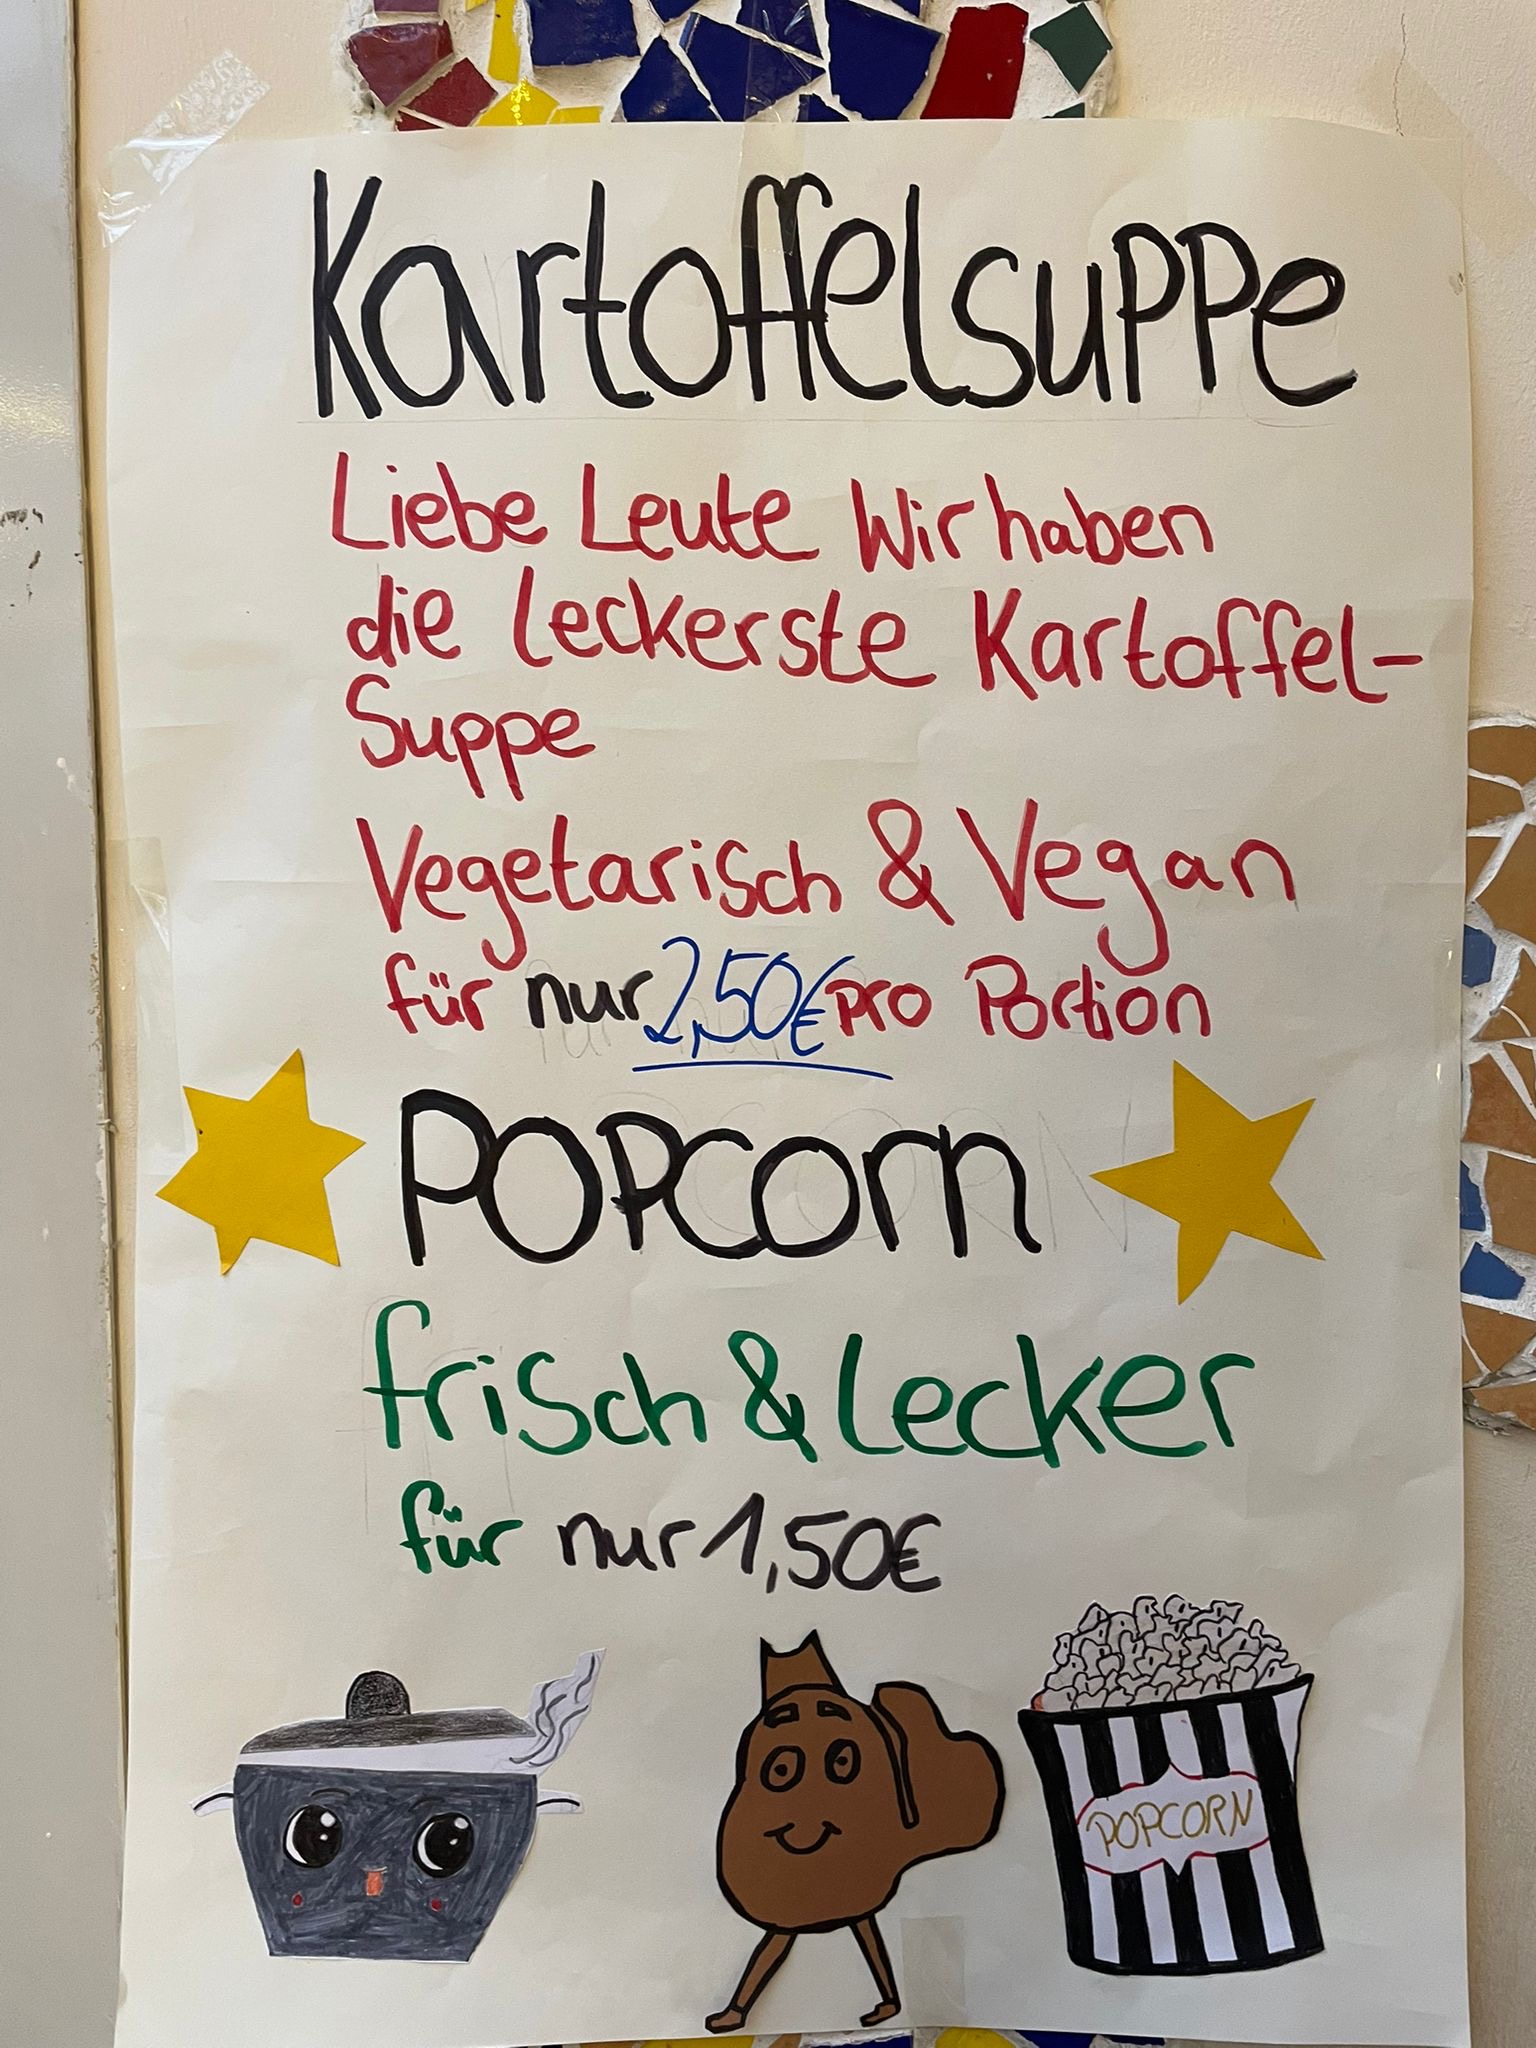 Kartoffelsuppe
Liebe Leute Wir haben
die leckerste Kartoffel-
Suppe
Vegetarisch & Vegan
für nur 2,50€ pro Portion
POPcorn
frisch & Lecker
für nur 1,50€
POPCORN